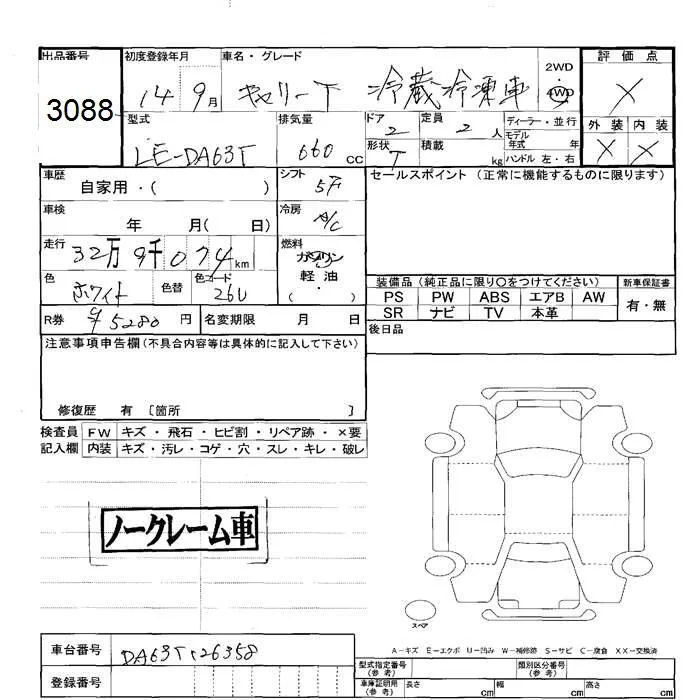 出品番号 初度登録年月 車名・グレード 2WD・4WD 評価点
3088 14 9月 キャリーT 冷蔵冷凍車 X
型式 排気量 ドア 2 定員 2人 ディーラー・並行 外装 内装
モデル年式 年
LE-DA63T 660cc 形状 T 積載 kg ハンドル 左・右 X X
車歴 シフト セールスポイント (正常に機能するものに限ります)
自家用・( ) 5F
車検 冷房
年 月( 日) A/C
走行 燃料
32万9千074km ガソリン
軽油
・
( )
色 色替 色コード
ホワイト 26U
装備品 (純正品に限り〇をつけてください) 新車保証書
PS PW ABS エアB AW 有・無
SR ナビ TV 本革
R券 ¥5280円 名変期限 月 日 後日品
注意事項申告欄(不具合内容等は具体的に記入して下さい)
修復歴 有 〔箇所 〕
検査員 FW キズ・飛石・ヒビ割・リペア跡・×要
記入欄 内装 キズ・汚レ・コゲ・穴・スレ・キレ・破レ
ノークレーム車
スペア
A-キズ E-エクボ U-凹み W-補修跡 S-サビ C-腐食 XX-交換済
車台番号 DA63T-126358
登録番号
型式指定番号(参考) 類別区分番号(参考)
車庫証明用(参考) 長さ cm 幅 cm 高さ cm